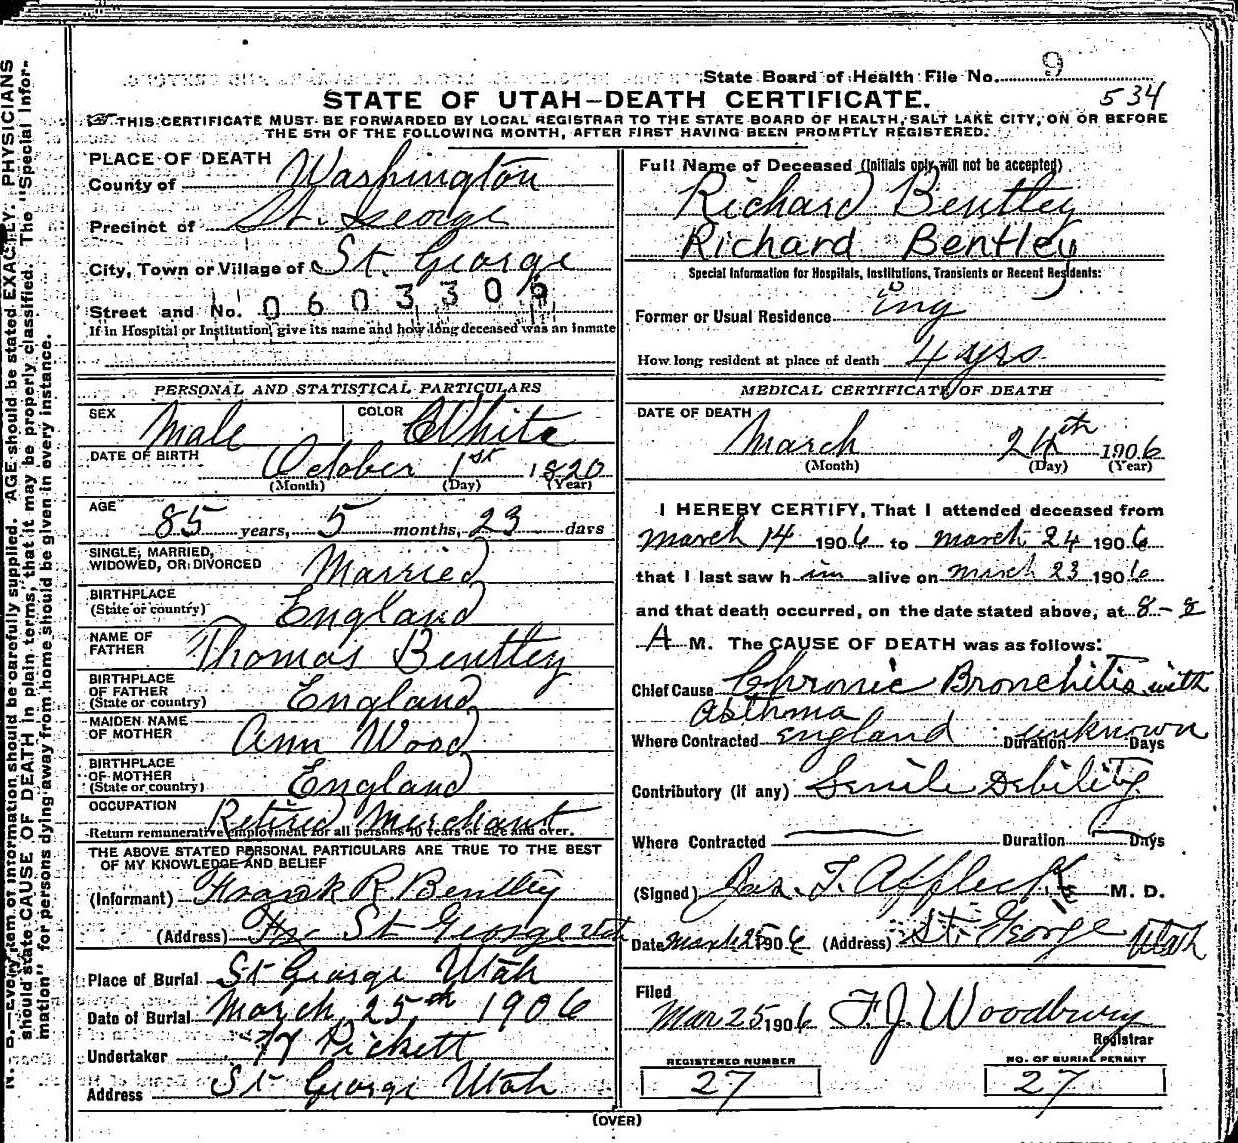 State Board of Health File No. 9
534
STATE OF UTAH—DEATH CERTIFICATE.
THIS CERTIFICATE MUST BE FORWARDED BY LOCAL REGISTRAR TO THE STATE BOARD OF HEALTH, SALT LAKE CITY, ON OR BEFORE
THE 5TH OF THE FOLLOWING MONTH, AFTER FIRST HAVING BEEN PROMPTLY REGISTERED.
N. B.—Every item of information should be carefully supplied. AGE should be stated EXACTLY. PHYSICIANS
should state CAUSE OF DEATH in plain terms, that it may be properly classified. The "Special Infor-
mation" for persons dying away from home should be given in every instance.
PLACE OF DEATH
County of Washington
Precinct of St. George
City, Town or Village of St. George
Street and No. 0603309
If in Hospital or Institution, give its name and how long deceased was an inmate
PERSONAL AND STATISTICAL PARTICULARS
SEX Male COLOR White
DATE OF BIRTH October 1st 1820
(Month) (Day) (Year)
AGE 85 years, 5 months, 23 days
SINGLE, MARRIED,
WIDOWED, OR DIVORCED Married
BIRTHPLACE
(State or country) England
NAME OF
FATHER Thomas Bentley
BIRTHPLACE
OF FATHER
(State or country) England
MAIDEN NAME
OF MOTHER Ann Wood
BIRTHPLACE
OF MOTHER
(State or country) England
OCCUPATION Retired Merchant
Return remunerative employment for all persons 10 years of age and over.
THE ABOVE STATED PERSONAL PARTICULARS ARE TRUE TO THE BEST
OF MY KNOWLEDGE AND BELIEF
(Informant) Frank R Bentley
(Address) St George Utah
Place of Burial St George Utah
Date of Burial March 25th 1906
Undertaker Pickett
Address St George Utah
Full Name of Deceased (Initials only will not be accepted)
Richard Bentley
Richard Bentley
Special Information for Hospitals, Institutions, Transients or Recent Residents:
Former or Usual Residence Eng
How long resident at place of death 4 yrs
MEDICAL CERTIFICATE OF DEATH
DATE OF DEATH
March 24th 1906
(Month) (Day) (Year)
I HEREBY CERTIFY, That I attended deceased from
March 14 1906 to March 24 1906
that I last saw him alive on March 23 1906
and that death occurred, on the date stated above, at 8-8
A M. The CAUSE OF DEATH was as follows:
Chief Cause Chronic Bronchitis with
Asthma
Where Contracted England Duration unknown Days
Contributory (if any) Senile Debility
Where Contracted Duration Days
(Signed) Jas. F. Affleck M. D.
Date March 25 1906 (Address) St. George Utah
Filed
Mar 25 1906 F. J. Woodbury
Registrar
REGISTERED NUMBER NO. OF BURIAL PERMIT
27 27
(OVER)